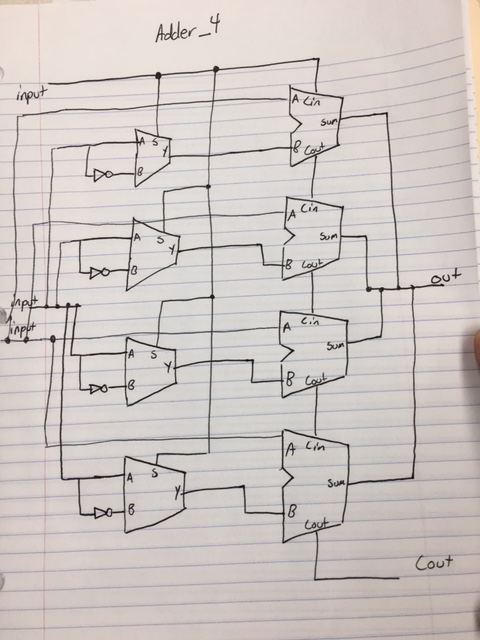 Adder_4
input
A Cin
Sum
B Cout
A S
Y
B
A Cin
Sum
B Cout
A S
Y
B
out
input
input
A Cin
Sum
B Cout
A S
Y
B
A Cin
Sum
B
Cout
A S
Y
B
Cout